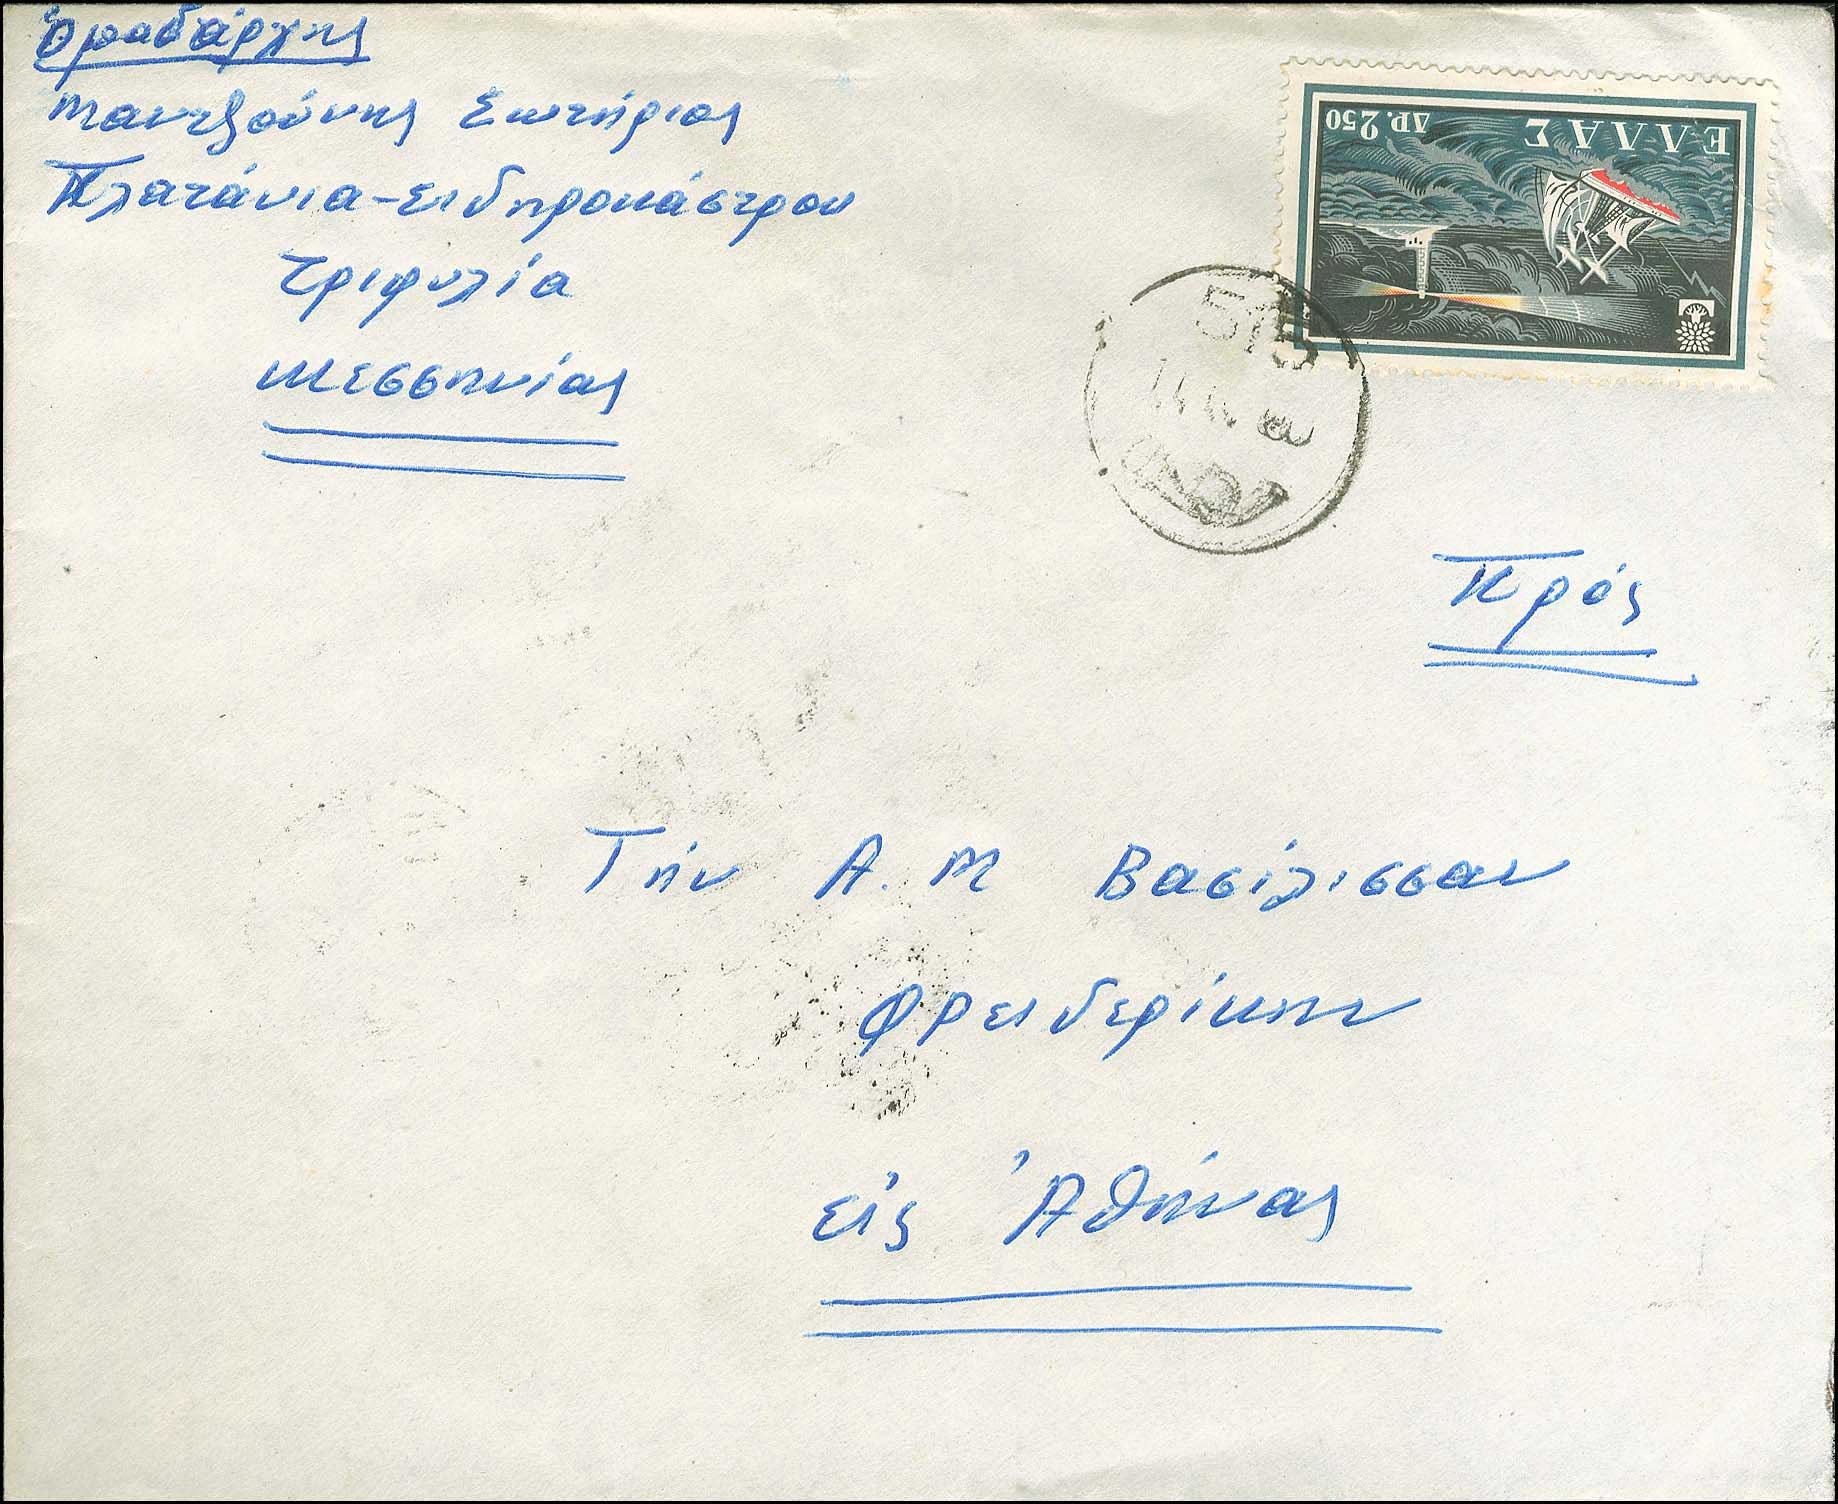 Ὁμαδάρχης
Μαντζούνης Σωτήριος
Πλατάνια-Σιδηροκάστρου
Τριφυλία
Μεσσηνίας
ΕΛΛΑΣ ΔΡ. 2.50
515
Πρός
Τήν Α. Μ Βασίλισσαν
Φρειδερίκην
εἰς Ἀθήνας